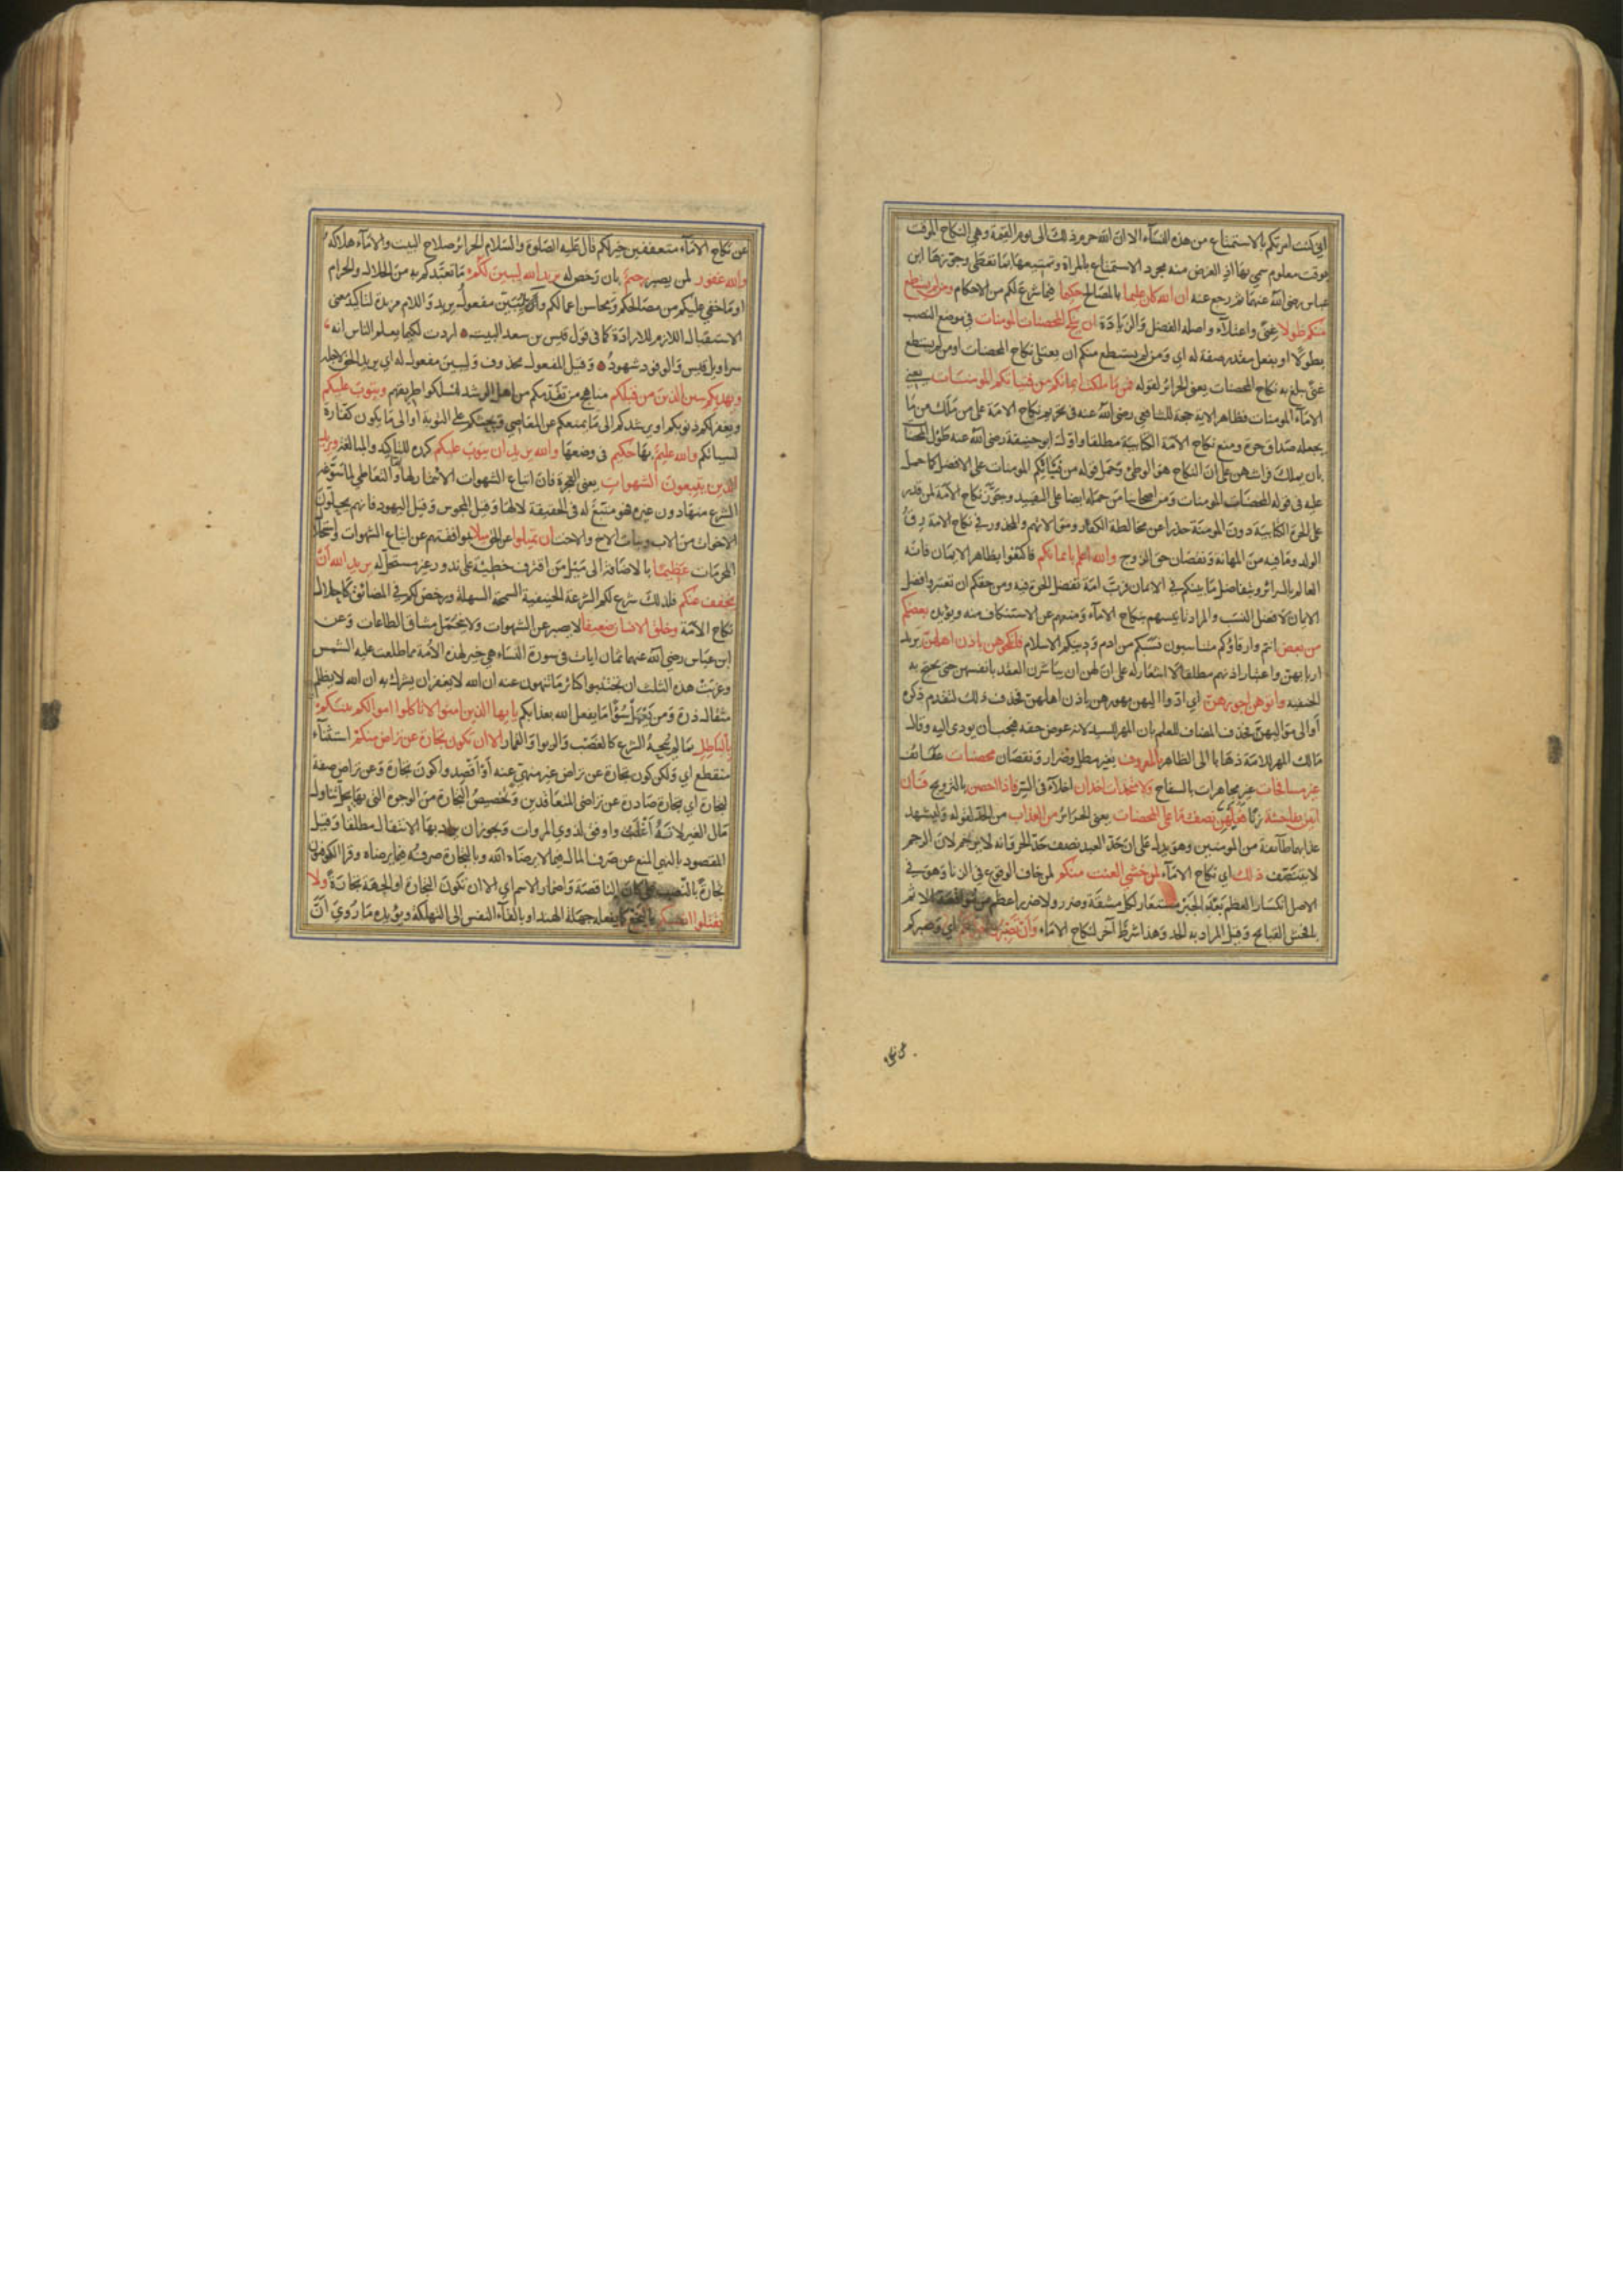 اني كنت امرتكم بالاستمتاع من هذه النساء الا ان الله حرم ذلك الى يوم القيمة وهي النكاح الموقت
بوقت معلوم سمي بها اذ الغرض منه مجرد الاستمتاع بالمراة وتمتيعها بما تعطى وجوزها ابن
عباس رضي الله عنهما ثم رجع عنه ان الله كان عليما بالمصالح حكيما فيما شرع لكم من الاحكام ومن لم يستطع
منكم طولا غنى واعتلاء واصله الفضل والزيادة ان ينكح المحصنات المومنات في موضع النصب
بطولا او بفعل مقدر صفة له اي ومن لم يستطع منكم ان يعتلي نكاح المحصنات او من لم يستطع
غنى يبلغ به نكاح المحصنات يعني الحرائر لقوله فمن ما ملكت ايمانكم من فتياتكم المومنات يعني
الاماء المومنات فظاهر الاية حجة للشافعي رضي الله عنه في تحريم نكاح الامة على من ملك من ما
يجعله صداق حرة ومنع نكاح الامة الكتابية مطلقا واول ابو حنيفة رضي الله عنه طول المحصنا
بان يملك فراشهن على ان النكاح هو الوطئ وحمل قوله من فتياتكم المومنات على الافضل كما حمل
عليه في قوله المحصنات المومنات ومن اصحابنا من حمله ايضا على التقييد وجوز نكاح الامة لمن قدر
على الحرة الكتابية دون المومنة حذرا عن مخالطة الكفار وموالاتهم والمحذور في نكاح الامة رق
الولد وما فيه من المهانة ونقصان حق الزوج والله اعلم بايمانكم فاكتفوا بظاهر الايمان فانه
العالم بالسرائر وبتفاضل ما بينكم في الايمان فرب امة تفضل الحرة فيه ومن حقكم ان تعتبروا فضل
الايمان لا فضل النسب والمراد تانيسهم بنكاح الاماء ومنعهم عن الاستنكاف منه ويؤيده بعضكم
من بعض انتم وارقاؤكم متناسبون نسبكم من ادم ودينكم الاسلام فانكحوهن باذن اهلهن يريد
اربابهن واعتبار اذنهم مطلقا لا اشعار له على ان لهن ان يباشرن العقد بانفسهن حتى يحتج به
الحنفية واتوهن اجورهن اي ادوا اليهن مهورهن باذن اهلهن فحذف ذلك لتقدم ذكره
او الى مواليهن فحذف المضاف للعلم بان المهر للسيد لانه عوض حقه فيجب ان يودى اليه وقال
مالك المهر للامة ذهابا الى الظاهر بالمعروف بغير مطل وضرار ونقصان محصنات عفائف
غير مسافحات غير مجاهرات بالسفاح ولا متخذات اخدان اخلاء في السر فاذا احصن بالتزويج فان
اتين بفاحشة زنا فعليهن نصف ما على المحصنات يعني الحرائر من العذاب من الحد لقوله وليشهد
عذابهما طائفة من المومنين وهو يدل على ان حد العبد نصف حد الحر وانه لا يرجم لان الرجم
لا يتنصف ذلك اي نكاح الاماء لمن خشي العنت منكم لمن خاف الوقوع في الزنا وهو في
الاصل انكسار العظم بعد الجبر مستعار لكل مشقة وضرر ولا ضرر اعظم من مواقعة الاثم
بافحش القبائح وقيل المراد به الحد وهذا شرط آخر لنكاح الاماء وان تصبروا خير لكم اي وصبركم
عن نكاح الاماء متعففين خير لكم قال عليه الصلوة والسلام الحرائر صلاح البيت والاماء هلاكه
والله غفور لمن يصبر رحيم بان رخص له يريد الله ليبين لكم ما تعبدكم به من الحلال والحرام
او ما خفي عليكم من مصالحكم ومحاسن اعمالكم وليبين مفعول يريد واللام مزيدة لتاكيد معنى
الاستقبال اللازم للارادة كما في قول قيس بن سعد البيت اردت لكيما يعلم الناس انه
سراويل قيس والوفود شهود وقيل المفعول محذوف وليبين مفعول له اي يريد الحق لاجله
ويهديكم سنن الذين من قبلكم مناهج من تقدمكم من اهل الرشد لتسلكوا طريقهم ويتوب عليكم
ويغفر لكم ذنوبكم او يرشدكم الى ما يمنعكم عن المعاصي ويحثكم على التوبة او الى ما يكون كفارة
لسيئاتكم والله عليم بها حكيم في وضعها والله يريد ان يتوب عليكم كرره للتاكيد والمبالغة ويريد
الذين يتبعون الشهوات يعني الفجرة فان اتباع الشهوات الائتمار لها واما التعاطي لما سوغه
الشرع منها دون غيره فهو متبع له في الحقيقة لا لها وقيل المجوس وقيل اليهود فانهم يحلون
الاخوات من الاب وبنات الاخ والاخت ان تميلوا عن الحق ميلا بموافقتهم عن اتباع الشهوات واستحلال
المحرمات عظيما بالاضافة الى ميل من اقترف خطيئة على ندور غير مستحل له يريد الله ان
يخفف عنكم فلذلك شرع لكم الشرعة الحنيفية السمحة السهلة ورخص لكم في المضائق كاحلال
نكاح الامة وخلق الانسان ضعيفا لا يصبر عن الشهوات ولا يحتمل مشاق الطاعات وعن
ابن عباس رضي الله عنهما ثمان ايات في سورة النساء هي خير لهذه الامة مما طلعت عليه الشمس
وغربت هذه الثلث ان تجتنبوا كبائر ما تنهون عنه ان الله لا يغفر ان يشرك به ان الله لا يظلم
مثقال ذرة ومن يعمل سوءا ما يفعل الله بعذابكم يا ايها الذين امنوا لا تاكلوا اموالكم بينكم
بالباطل بما لم يبحه الشرع كالغصب والربوا والقمار الا ان تكون تجارة عن تراض منكم استثناء
منقطع اي ولكن كون تجارة عن تراض غير منهي عنه او اقصدوا كون تجارة وعن تراض صفة
لتجارة اي تجارة صادرة عن تراضي المتعاقدين وتخصيص التجارة من الوجوه التي بها يحل تناول
مال الغير لانه اغلب واوفق لذوي المروات ويجوز ان يراد بها الانتقال مطلقا وقيل
المقصود بالنهي المنع عن صرف المال فيما لا يرضاه الله وبالتجارة صرفه فيما يرضاه وقرا الكوفيون
تجارة بالنصب على كان الناقصة واضمار الاسم اي الا ان تكون التجارة او الجهة تجارة ولا
تقتلوا انفسكم بالبخع كما يفعله جهلة الهند او بالقاء النفس الى التهلكة ويؤيده ما روي ان